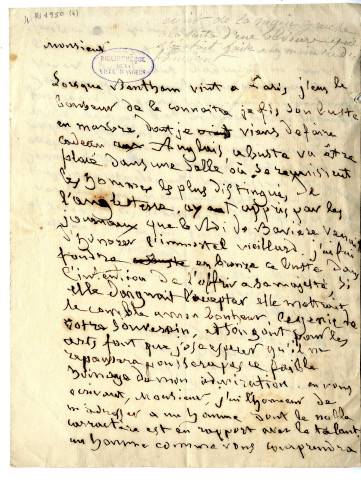 Ms 1950 (4)
écrit de la main gauche
à la suite d'une blessure
Monsieur
BIBLIOTHÈQUE DE LA VILLE D'ANGERS
Lorsque Bentham vint à Paris, j'eus le
bonheur de le connaitre je fis son buste
en marbre, dont je viens de faire
cadeau aux Anglais, ce buste va être
placé dans une salle où se réunissent
les hommes les plus distingués de
l'angleterre, ayant appris par les
journaux que le Roi de Bavière venait
d'honorer l'immortel vieillard j'ai fait
fondre en bronze ce buste dans
l'intention de l'offrir a sa majesté, si
elle daignait l'accepter elle mettrait
le comble a mon bonheur. Le génie de
votre souverain, et son gout pour les
arts font que j'ose espérer qu'il ne
repoussera pas ce faible
hommage de mon admiration. en vous
écrivant, Monsieur, j'ai l'honneur de
m'adresser a un homme dont le noble
carractère est en rapport avec le talent
un homme comme vous comprendra